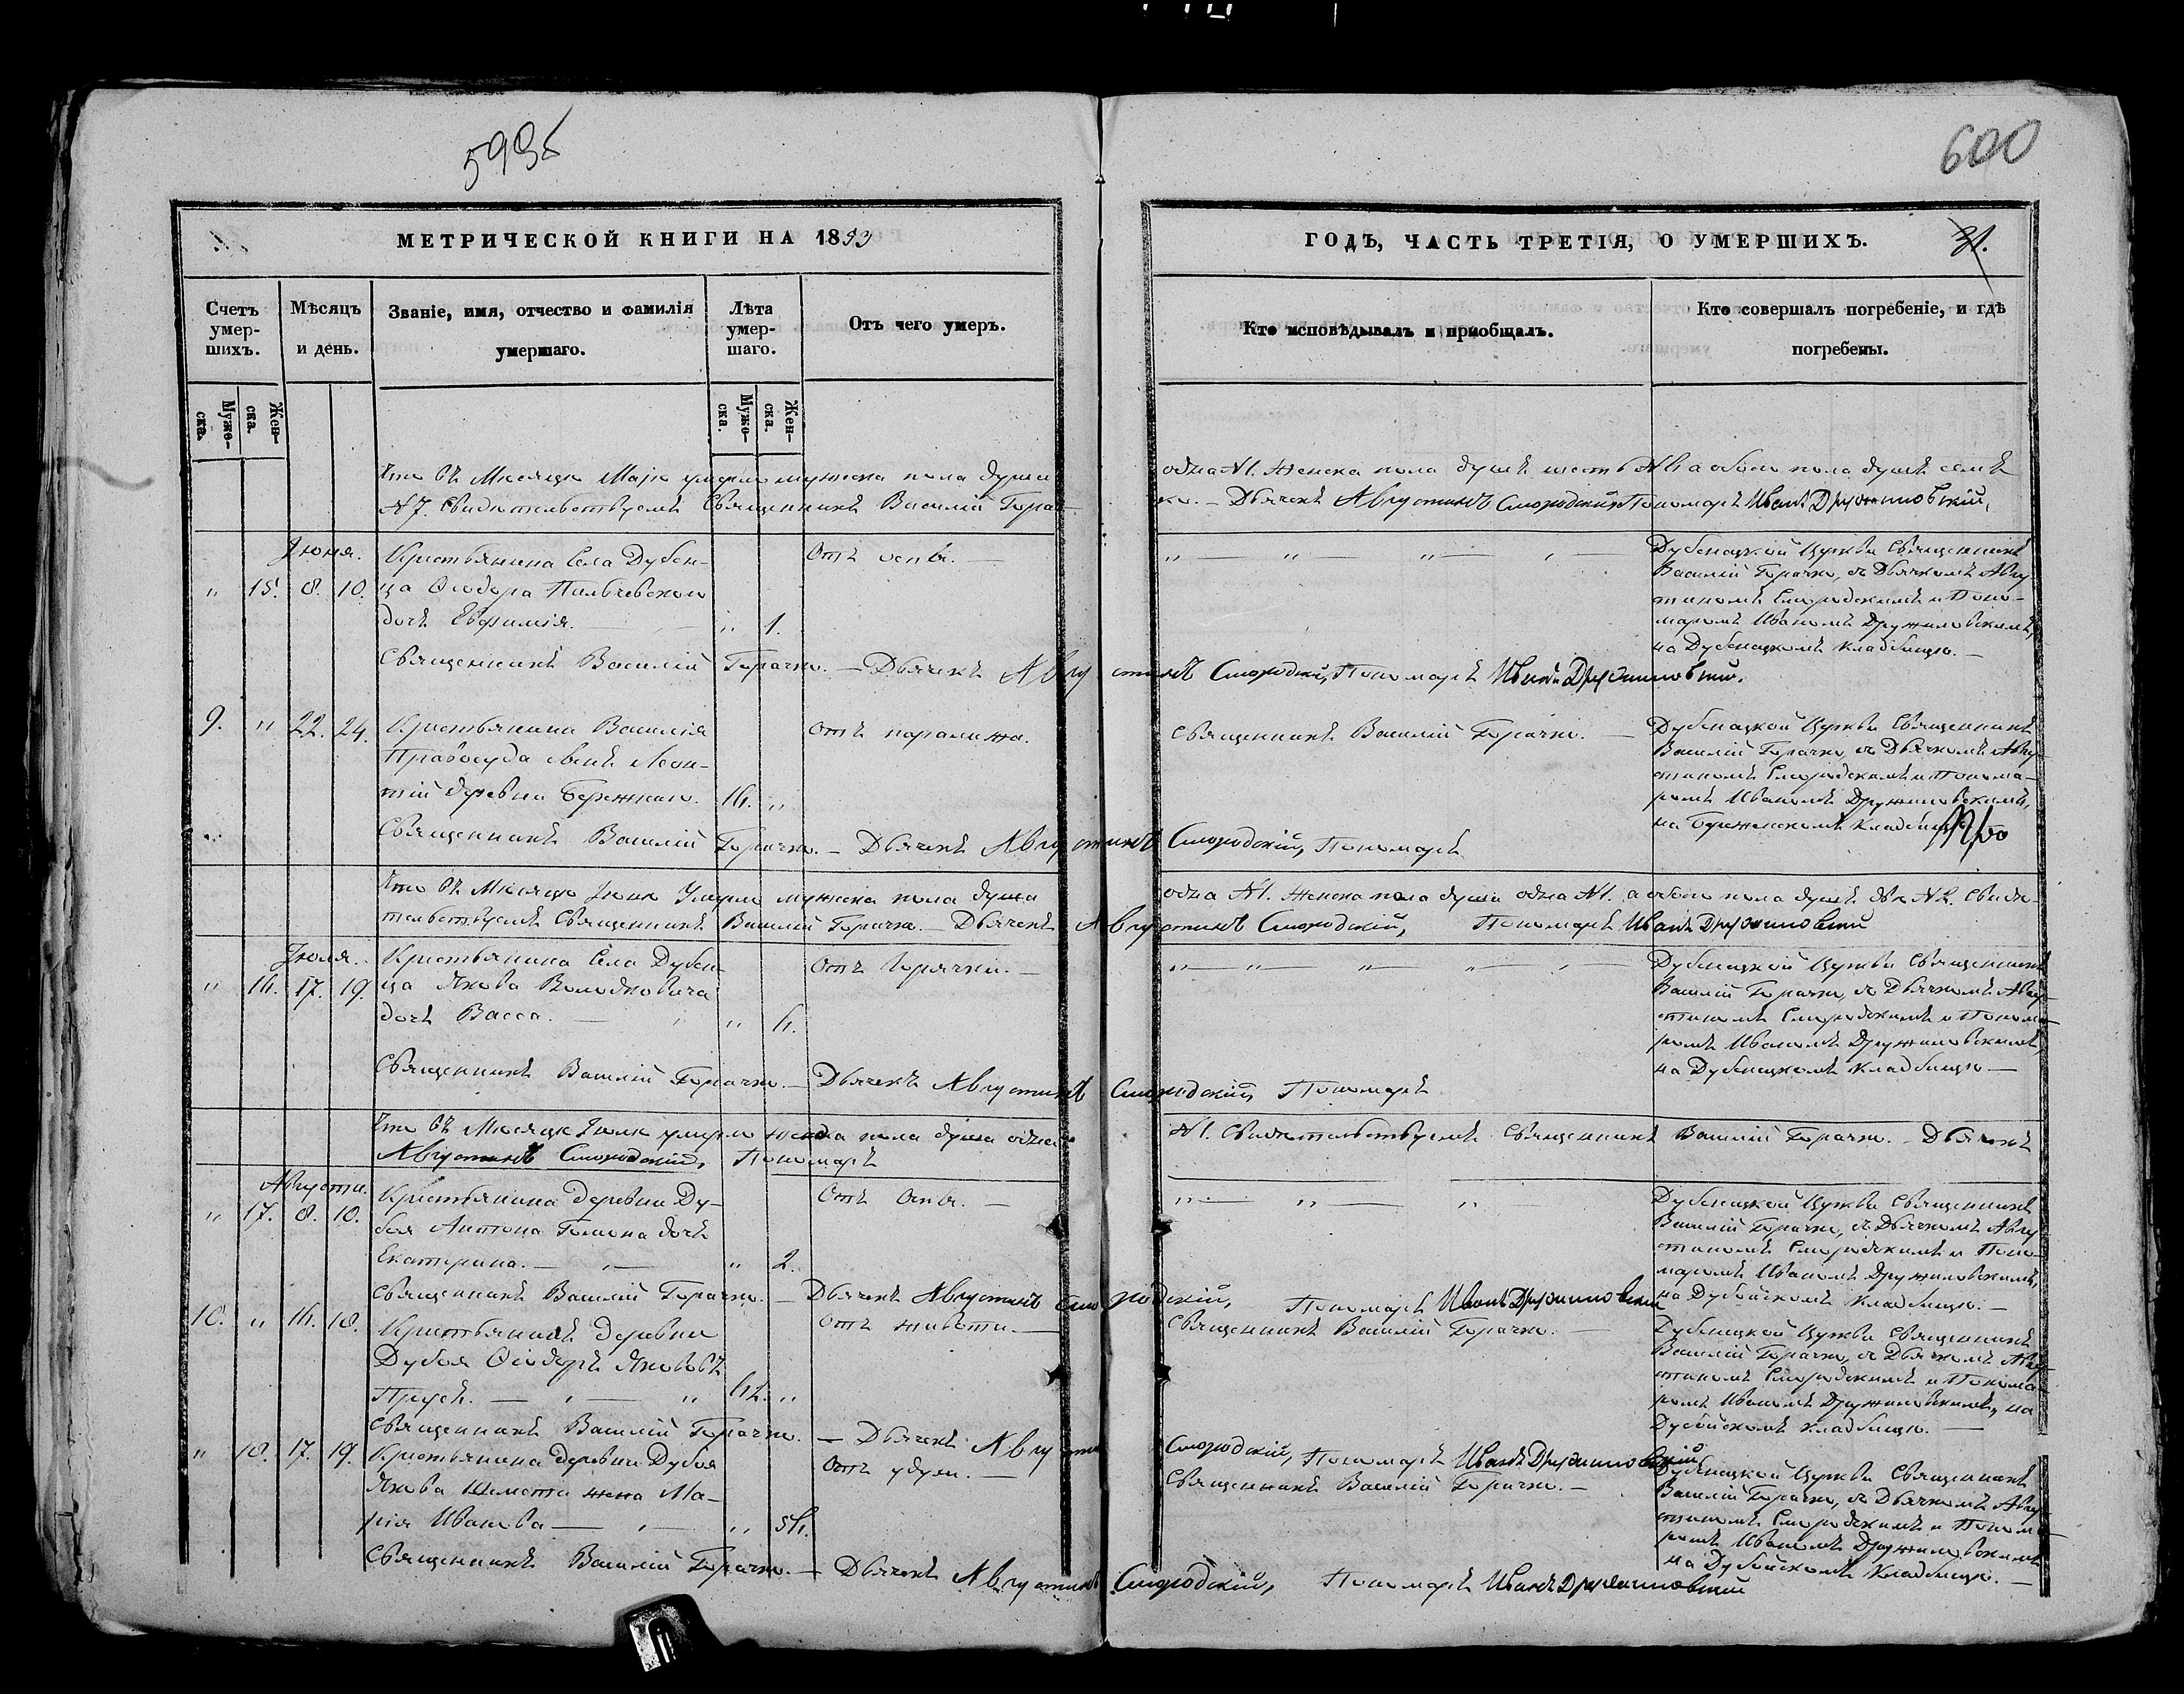 599б
600
МЕТРИЧЕСКОЙ КНИГИ НА 1853
ГОДЪ, ЧАСТЬ ТРЕТІЯ, О УМЕРШИХЪ.
31.
Счетъ умер-шихъ.
Мѣсяцъ и день.
Званіе, имя, отчество и фамилія умершаго.
Лѣта умер-шаго.
Отъ чего умеръ.
Кто исповѣдывалъ и пріобщалъ.
Кто совершалъ погребеніе, и гдѣ погребены.
Мужс-ска.
Жен-ска.
Мужс-ска.
Жен-ска.
Что въ Мѣсяцѣ Маіѣ умерло мужеска пола душа одна №1. Женска пола душъ шесть №6 а обоего пола душъ семь
№7. Свидѣтельствуемъ Священникъ Василій Горач-ко. – Дьячекъ Августинъ Смородскій Пономарь Иванъ Дружиловскій.
Іюня.
" 15. 8. 10.
Крестьянина Села Дубен-
ца Ѳеодора Пильчевского
дочь Евфимія.
" 1.
Отъ оспы. –
Дубенецкой Церкви Священникъ
Василій Горачко, съ Дьячкомъ Авгу
стиномъ Смородскимъ и Поно-
маремъ Иваномъ Дружиловскимъ,
на Дубенецкомъ кладбищѣ. –
Священникъ Василій Горачко. – Дьячекъ Августинъ Смородскій, Пономарь Иванъ Дружиловскій.
9. " 22. 24.
Крестьянина Василія
Правосуда сынъ Леон-
тій деревни Бережнаго.
16. "
Отъ паралижа.
Священникъ Василій Горачко. –
Дубенецкой Церкви Священникъ
Василій Горачко, съ Дьячкомъ Авгу-
стиномъ Смородскимъ и Понома-
ремъ Иваномъ Дружиловскимъ,
на Бережнскомъ кладбищѣ
Священникъ Василій Горачко. – Дьячекъ Августинъ Смородскій, Пономарь
Что въ Мѣсяцѣ Іюнѣ Умерло мужеска пола душа одна №1. Женска пола душа одна №1. а обоего пола душъ двѣ №2. Свидѣ-
тельствуемъ Священникъ Василій Горачко. – Дьячекъ Августинъ Смородскій, Пономарь Иванъ Дружиловскій
Іюля.
" 16. 17. 19.
Крестьянина Села Дубен-
ца Якова Володковича
дочь Васса. –
" 6.
Отъ Горячки. –
Дубенецкой Церкви Священникъ
Василій Горачко, съ Дьячкомъ Авгу-
стиномъ Смородскимъ и Понома-
ремъ Иваномъ Дружиловскимъ,
на Дубенецкомъ кладбищѣ –
Священникъ Василій Горачко. – Дьячекъ Августинъ Смородскій, Пономарь
Что въ Мѣсяцѣ Іюлѣ умерло женска пола душа одна №1. Свидѣтельствуемъ Священникъ Василій Горачко. – Дьячекъ
Августинъ Смородскій, Пономарь
Августа.
" 17. 8. 10.
Крестьянина деревни Ду-
боя Антона Гомона дочь
Екатерина. –
" 2.
Отъ Оспы. –
Дубенецкой Церкви Священникъ
Василій Горачко, съ Дьячкомъ Авгу
стиномъ Смородскимъ и Поно-
маремъ Иваномъ Дружиловскимъ,
на Дубойскомъ кладбищѣ. –
Священникъ Василій Горачко. – Дьячекъ Августинъ Смородскій, Пономарь Иванъ Дружиловскій
10. " 16. 18.
Крестьянинъ деревни
Дубоя Ѳеодоръ Якововъ
Прусъ. –
62. "
Отъ живота. –
Священникъ Василій Горачко. –
Дубенецкой Церкви Священникъ
Василій Горачко, съ Дьячкомъ Авгу-
стиномъ Смородскимъ и Понома-
ремъ Иваномъ Дружиловскимъ, на
Дубойскомъ кладбищѣ. –
Священникъ Василій Горачко. – Дьячекъ Августинъ Смородскій, Пономарь Иванъ Дружиловскій
" 18. 17. 19.
Крестьянина деревни Дубоя
Якова жена Ма-
рія Иванова –
" 56.
Отъ удуш. –
Священникъ Василій Горачко. –
Дубенецкой Церкви Священникъ
Василій Горачко, съ Дьячкомъ Авгу-
стиномъ Смородскимъ и Понома-
ремъ Иваномъ Дружиловскимъ
на Дубойскомъ кладбищѣ. –
Священникъ Василій Горачко. – Дьячекъ Августинъ Смородскій, Пономарь Иванъ Дружиловскій